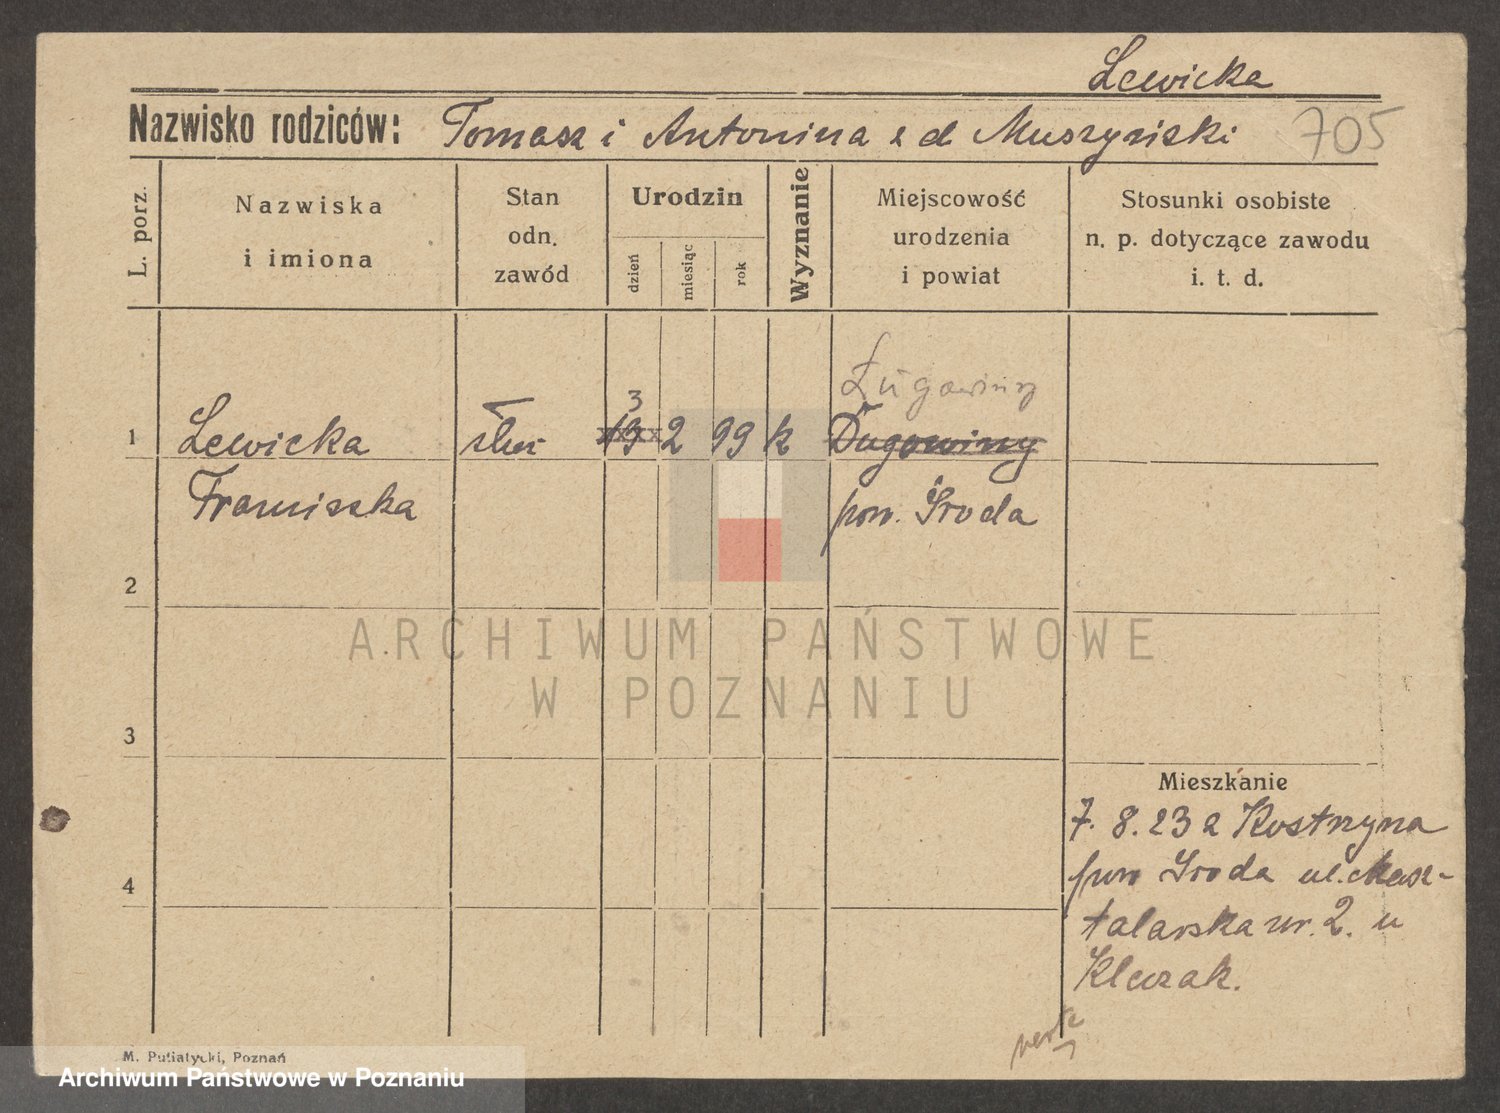 Lewicka
Nazwisko rodziców: Tomasz i Antonina z d Muszyński 705
L. porz.
Nazwiska
i imiona
Stan
odn.
zawód
Urodzin
dzień
miesiąc
rok
Wyznanie
Miejscowość
urodzenia
i powiat
Stosunki osobiste
n. p. dotyczące zawodu
i. t. d.
Ługowiny
3
1 Lewicka służ 19 2 99 k Dugowiny
Franciszka pow. Środa
2
ARCHIWUM PAŃSTWOWE
W POZNANIU
3
Mieszkanie
7. 8. 23 z Kostrzyna
pow Środa ul. Masz-
4
talarska nr. 2. u
Klerzak.
M. Putiatycki, Poznań
Archiwum Państwowe w Poznaniu